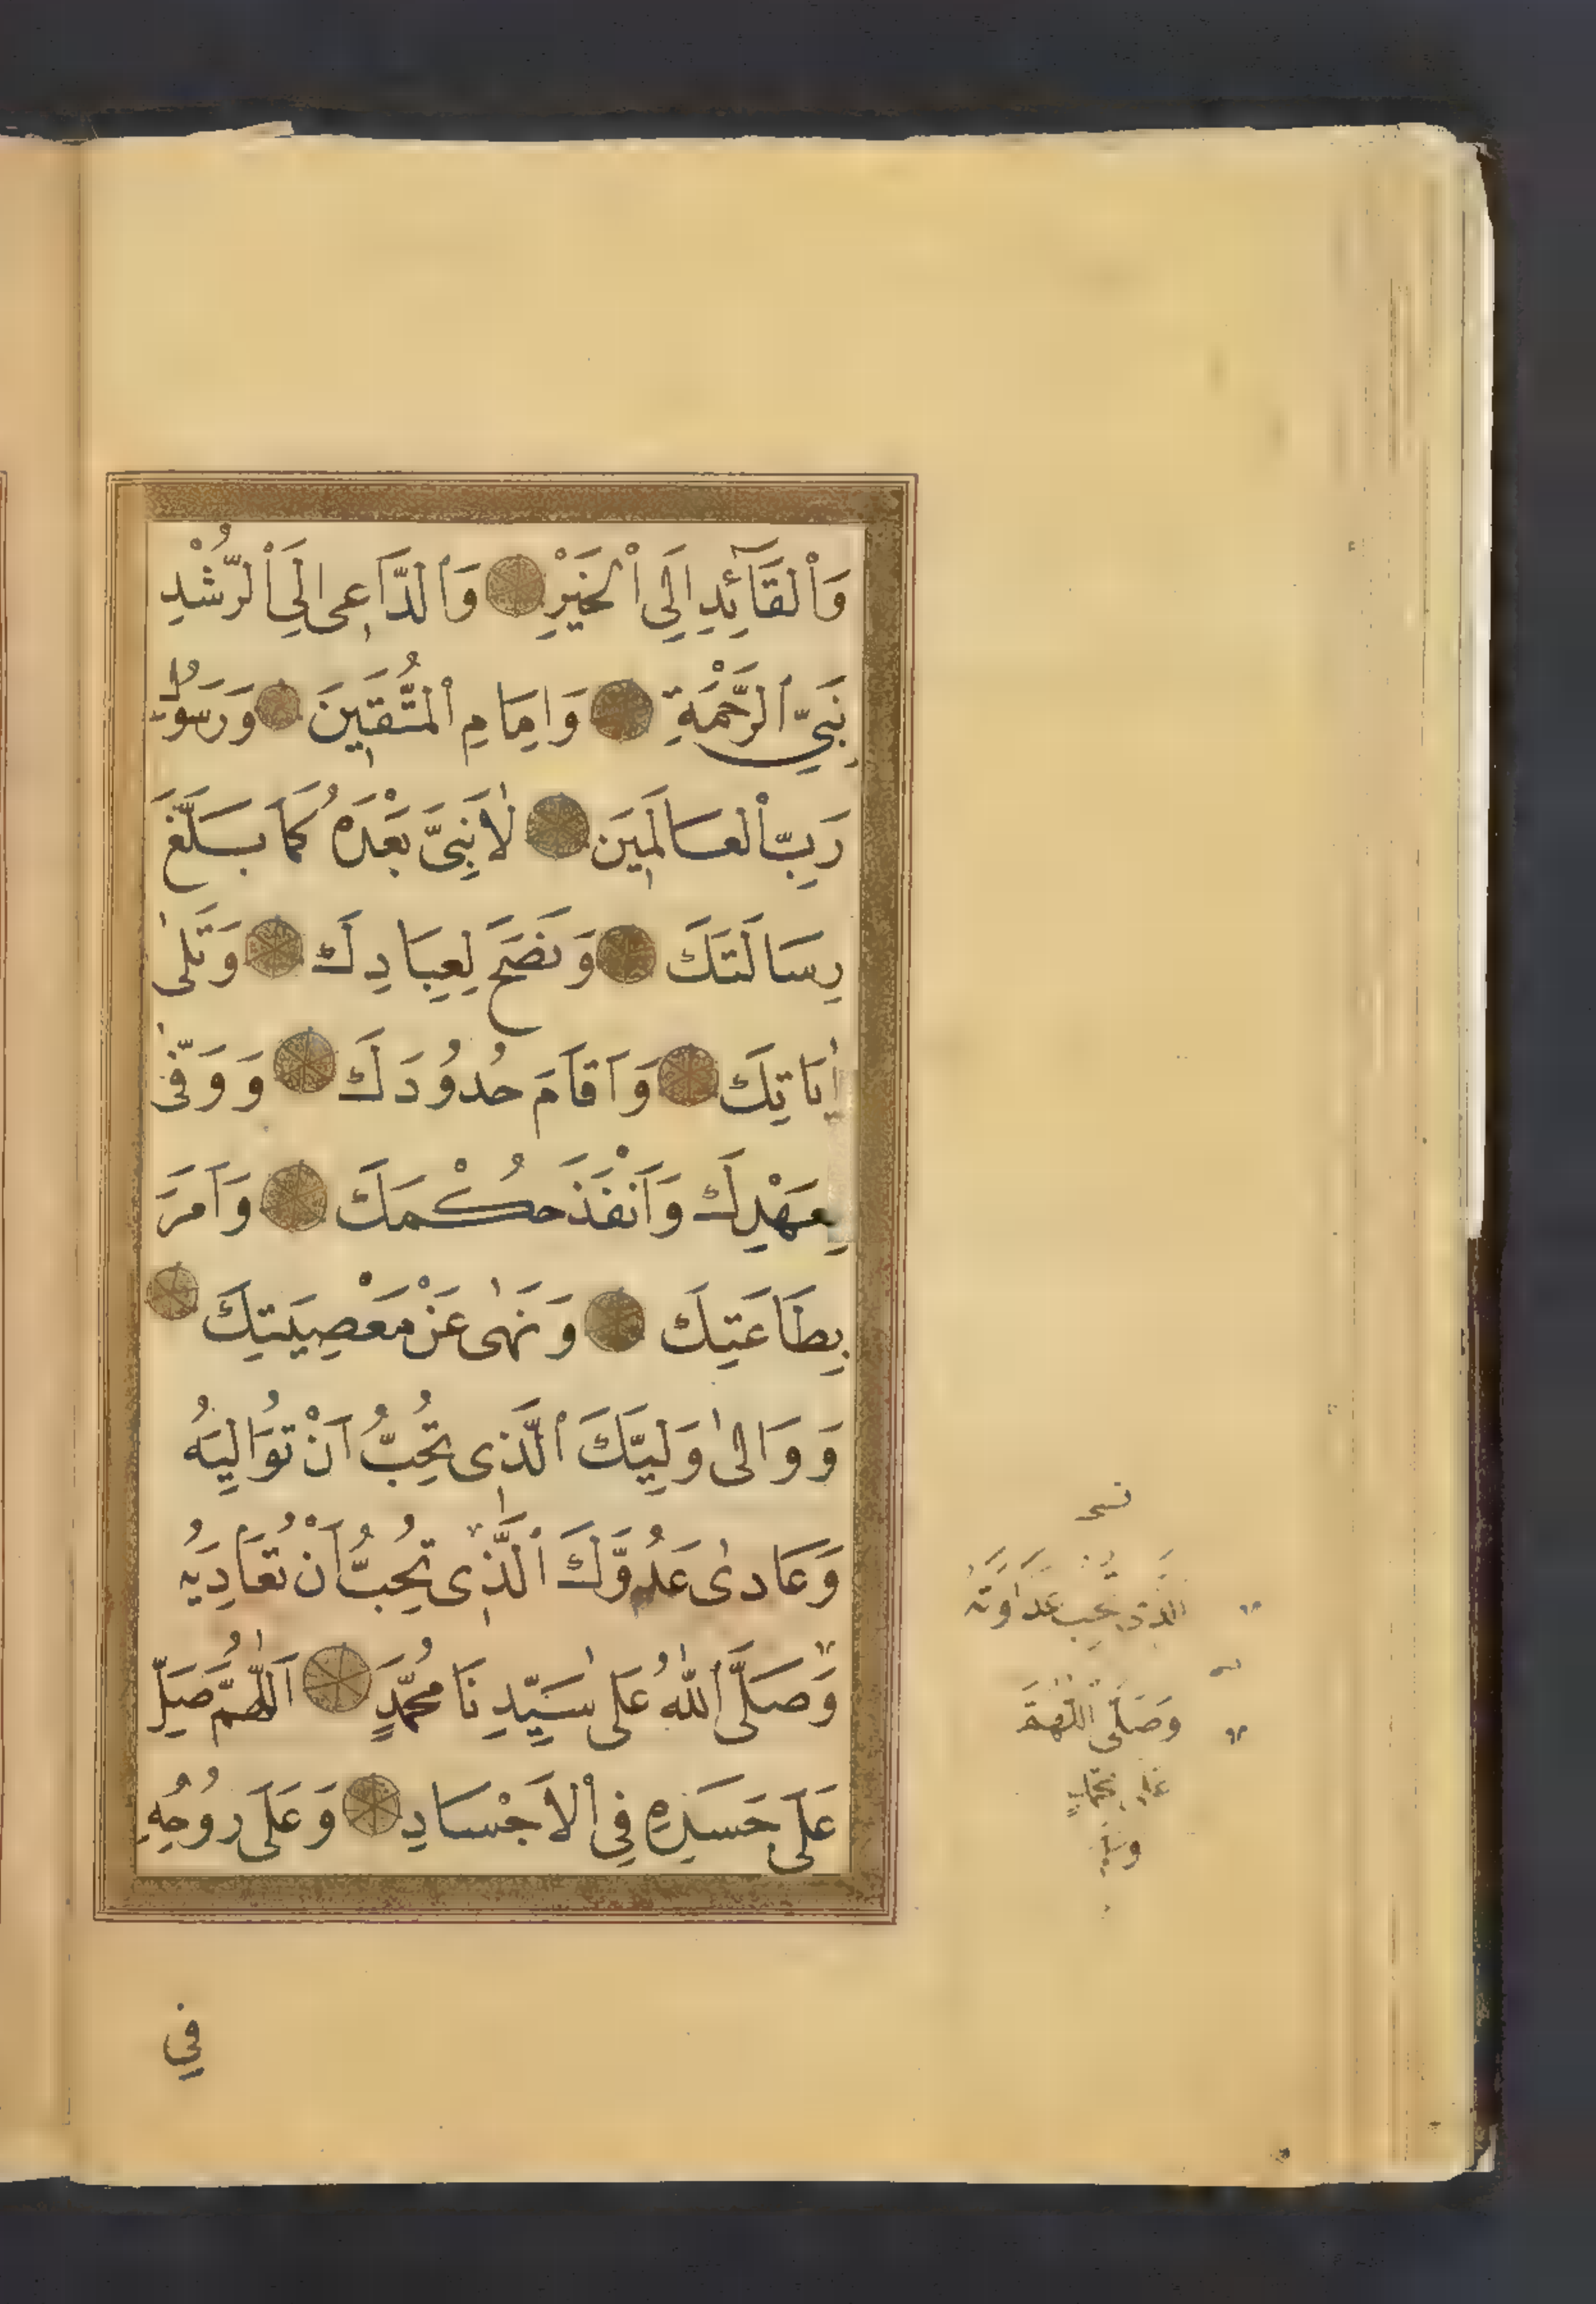 وَالْقَآئِدِ اِلَى الْخَيْرِ وَالدَّاعِى اِلَى الرُّشْدِ
نَبِيِّ الرَّحْمَةِ وَاِمَامِ الْمُتَّقِينَ وَرَسُولِ
رَبِّ الْعَالَمِينَ لَا نَبِىَّ بَعْدَهُ كَمَا بَلَّغَ
رِسَالَتَكَ وَنَصَحَ لِعِبَادِكَ وَتَلٰى
اٰيَاتِكَ وَاَقَامَ حُدُودَكَ وَوَفّٰى
بِعَهْدِكَ وَاَنْفَذَ حُكْمَكَ وَاَمَرَ
بِطَاعَتِكَ وَنَهٰى عَنْ مَعْصِيَتِكَ
وَوَالٰى وَلِيَّكَ الَّذِى تُحِبُّ اَنْ تُوَالِيَهُ
وَعَادٰى عَدُوَّكَ الَّذِى تُحِبُّ اَنْ تُعَادِيَهُ
وَصَلَّى اللّٰهُ عَلٰى سَيِّدِنَا مُحَمَّدٍ اَللّٰهُمَّ صَلِّ
عَلٰى جَسَدِهِ فِى الْاَجْسَادِ وَعَلٰى رُوحِهِ
الذى تحب عداوته
وَصَلَّى اللّٰهمَّ
على محمد
فِي